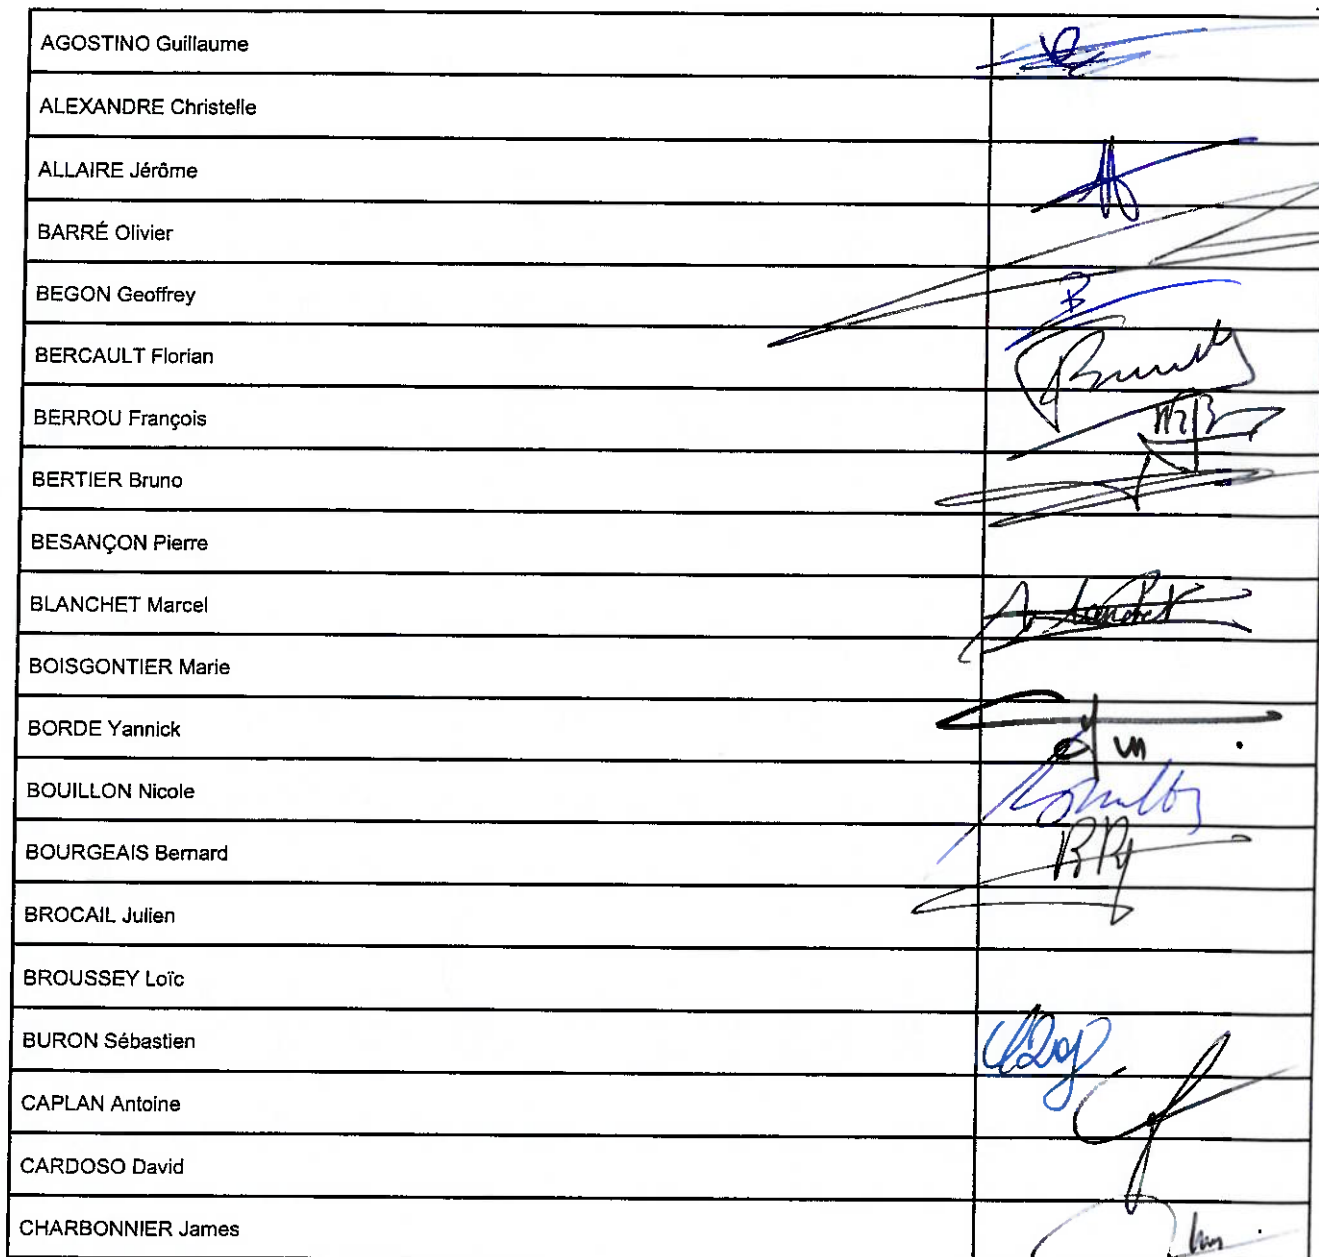 AGOSTINO Guillaume
ALEXANDRE Christelle
ALLAIRE Jérôme
BARRÉ Olivier
BEGON Geoffrey
BERCAULT Florian
BERROU François
BERTIER Bruno
BESANÇON Pierre
BLANCHET Marcel
BOISGONTIER Marie
BORDE Yannick
BOUILLON Nicole
BOURGEAIS Bernard
BROCAIL Julien
BROUSSEY Loïc
BURON Sébastien
CAPLAN Antoine
CARDOSO David
CHARBONNIER James